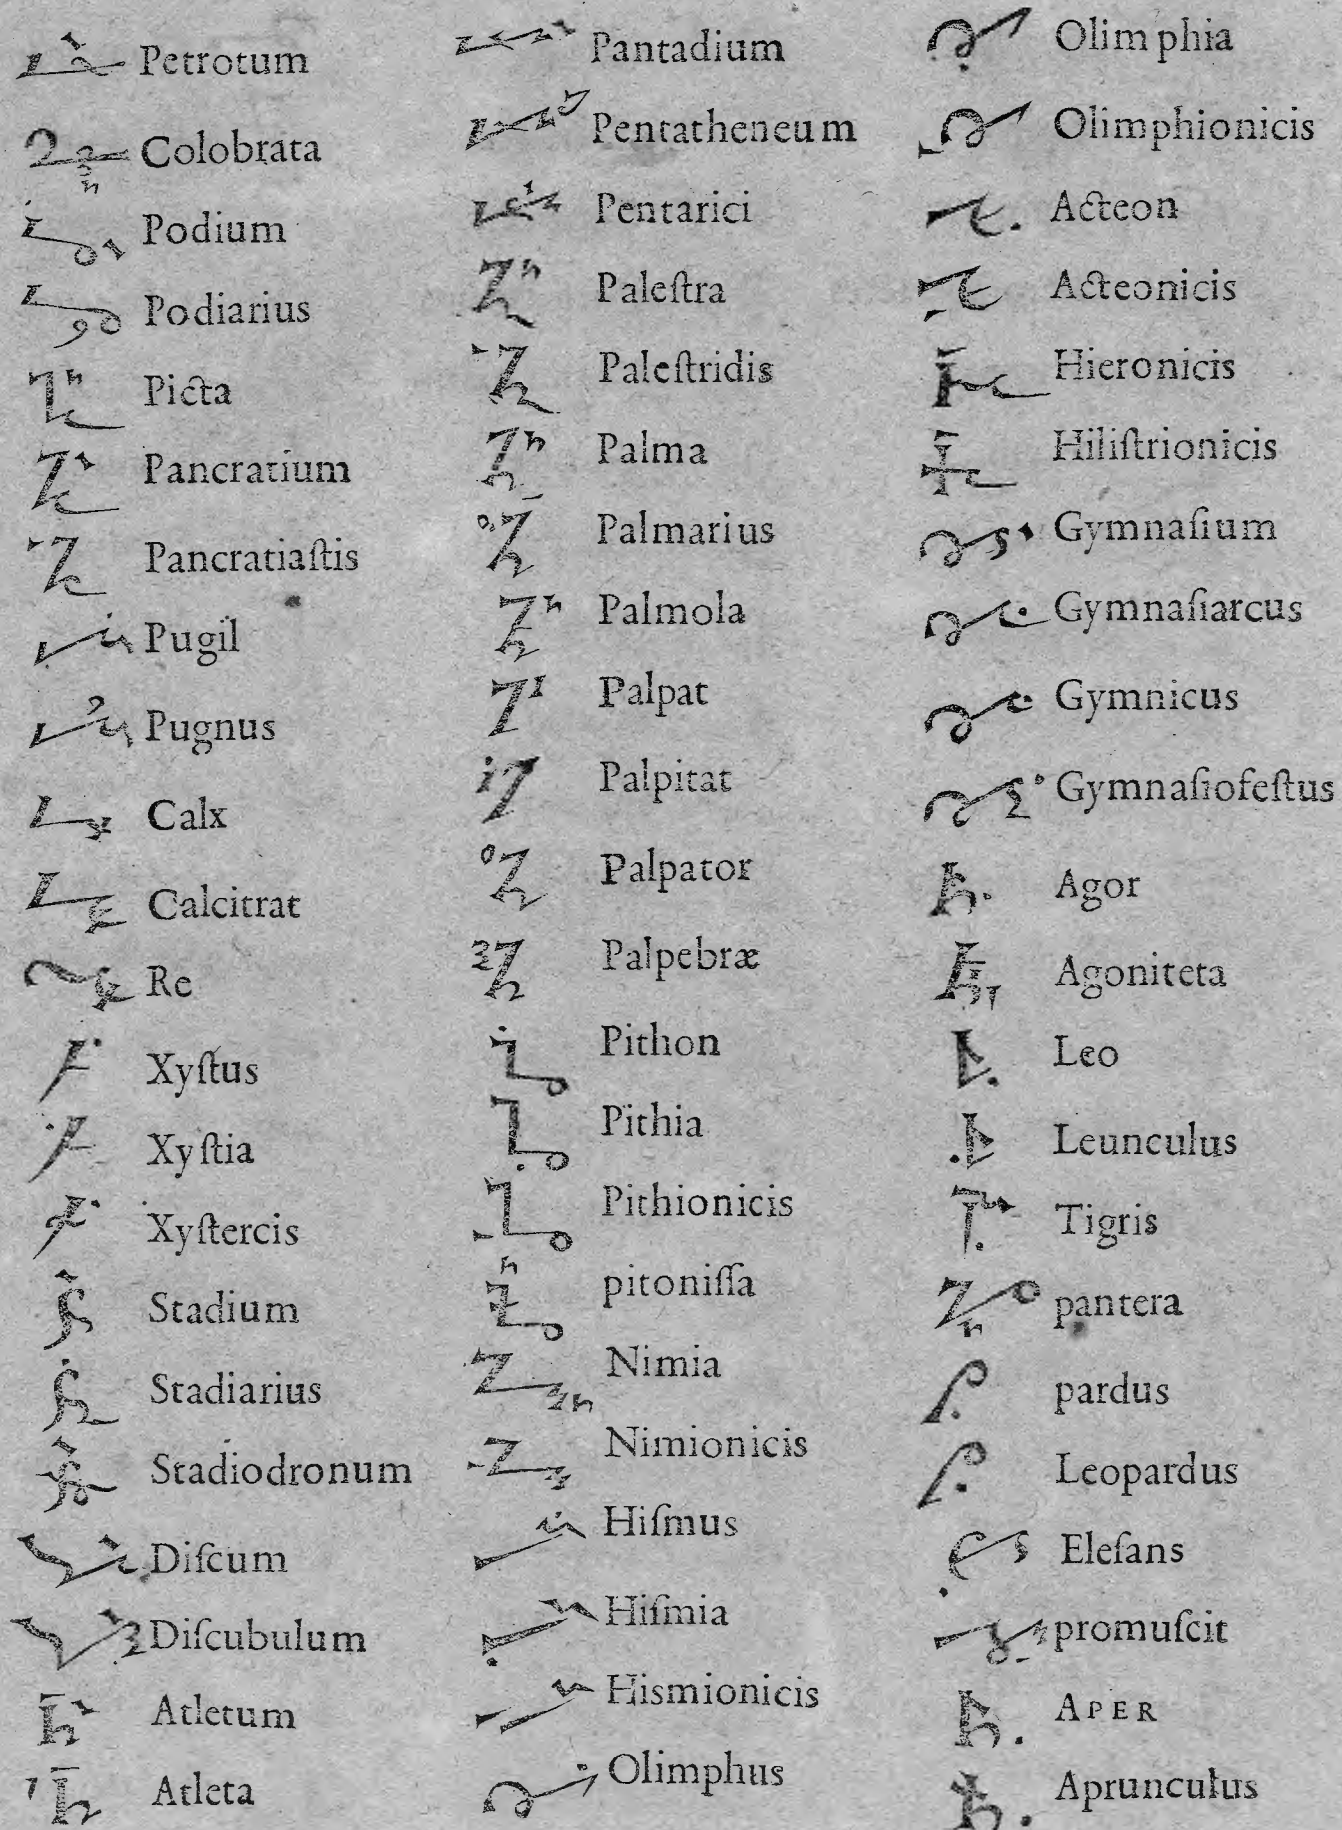 Petrotum
Colobrata
Podium
Podiarius
Picta
Pancratium
Pancratiaſtis
Pugil
Pugnus
Calx
Calcitrat
Re
Xyſtus
Xyſtia
Xyſtercis
Stadium
Stadiarius
Stadiodronum
Diſcum
Diſcubulum
Atletum
Atleta
Pantadium
Pentatheneum
Pentarici
Paleſtra
Paleſtridis
Palma
Palmarius
Palmola
Palpat
Palpitat
Palpator
Palpebræ
Pithon
Pithia
Pithionicis
pitoniſſa
Nimia
Nimionicis
Hiſmus
Hiſmia
Hismionicis
Olimphus
Olimphia
Olimphionicis
Acteon
Acteonicis
Hieronicis
Hiliſtrionicis
Gymnaſium
Gymnaſiarcus
Gymnicus
Gymnaſiofeſtus
Agor
Agoniteta
Leo
Leunculus
Tigris
pantera
pardus
Leopardus
Elefans
promuſcit
APER
Aprunculus